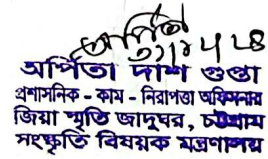 অর্পিতা
অর্পিতা দাশ গুপ্তা
প্রশাসনিক - কাম - নিরাপত্তা অফিসার
জিয়া স্মৃতি জাদুঘর, চট্টগ্রাম
সংস্কৃতি বিষয়ক মন্ত্রণালয়